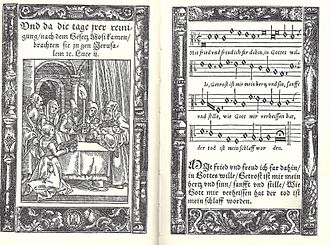 Und da die tage jrer reini-
gung/nach dem Gesetz Mosi kamen/
brachten sie jn gen Jerusa-
lem ꝛc. Luce ij.
Mit fried und freud ich far dahin, in Gottes wil-
le, Getrost ist mir mein hertz und sin, sanfft
und stille, wie Gott mir verheissen hat,
der tod ist mein schlaff wor den.
Mit fried und freud ich far dahin/
in Gottes wille/ Getrost ist mir mein
hertz und sinn/ sanfft und stille/ Wie
Gott mir verheissen hat der tod ist
mein schlaff worden.